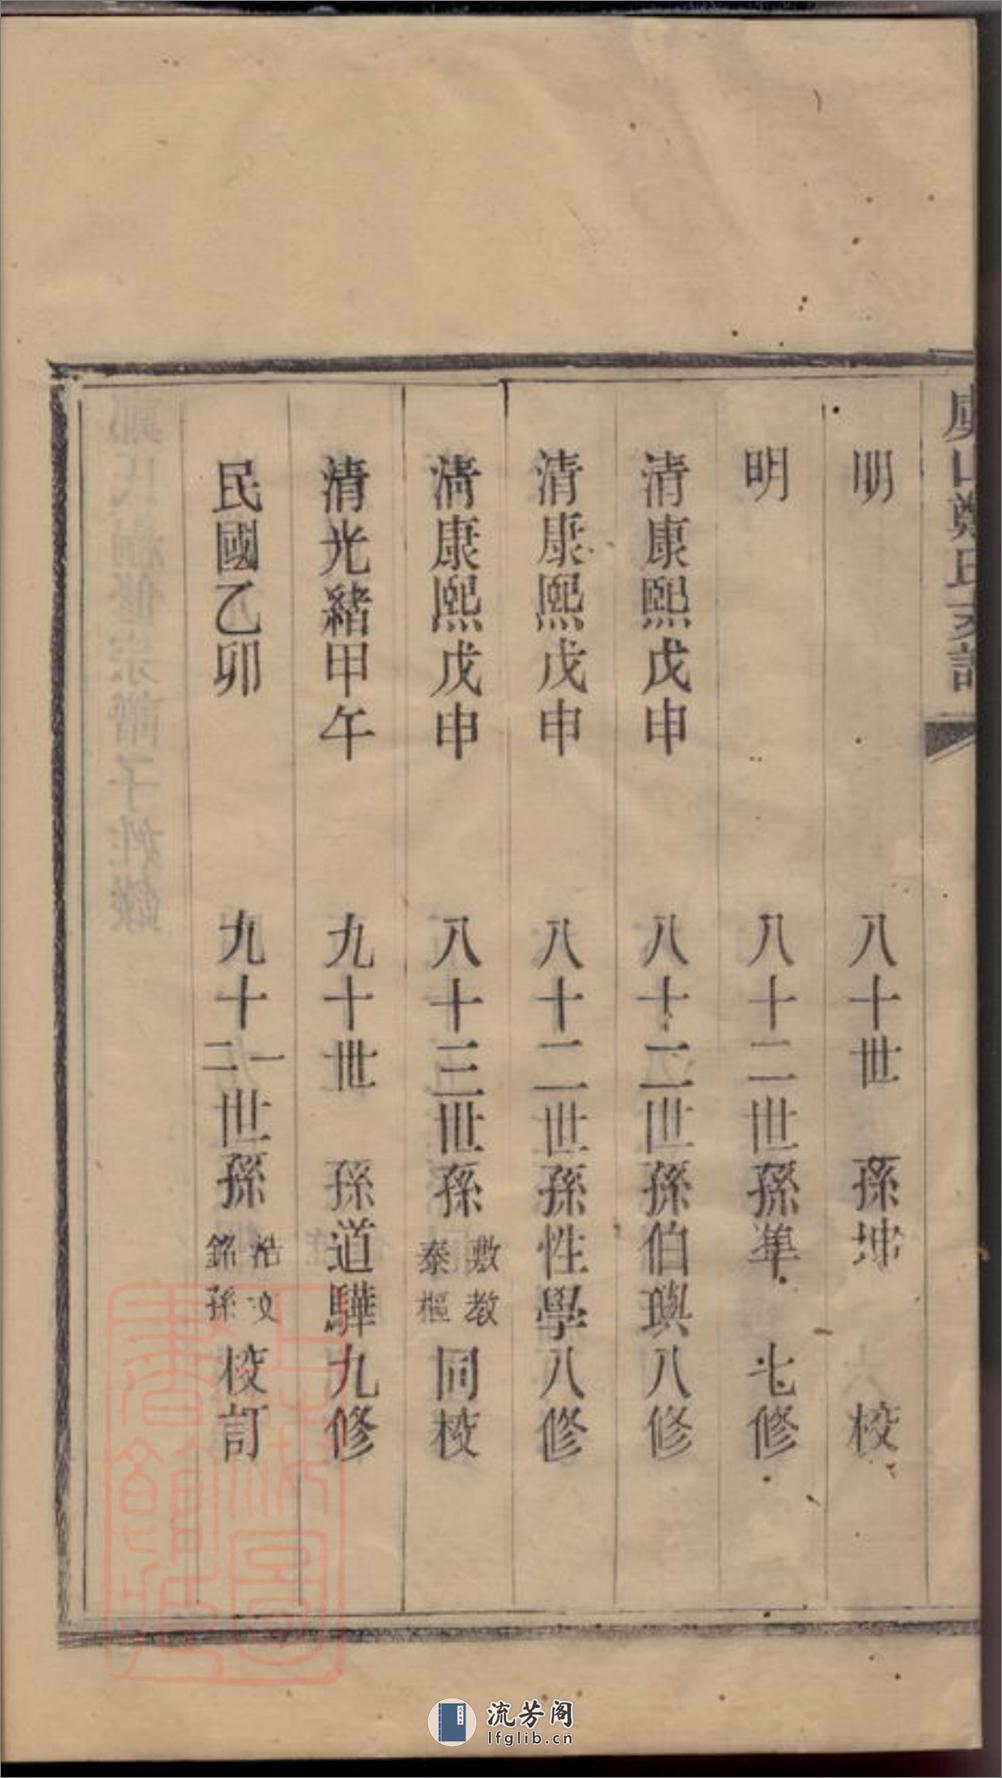 虞山鄭氏支譜
明 八十世 孫坤 校
明 八十二世孫準 七修
清康熙戊申 八十二世孫伯璵八修
清康熙戊申 八十二世孫性學八修
清康熙戊申 八十三世孫敷教泰樞同校
清光緒甲午 九十世 孫道驊九修
民國乙卯 九十一二世孫浩文銘孫校訂
鄭氏嗣修宗譜子姓錄
上海圖書館藏
流芳阁
lfglib.cn